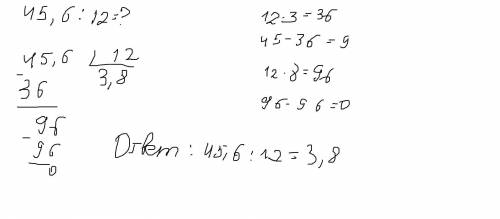 45,6 : 12 = ?
45,6 | 12
- 36
3,8
96
- 96
0
12 · 3 = 36
45 - 36 = 9
12 · 8 = 96
96 - 96 = 0
Ответ : 45,6 : 12 = 3,8